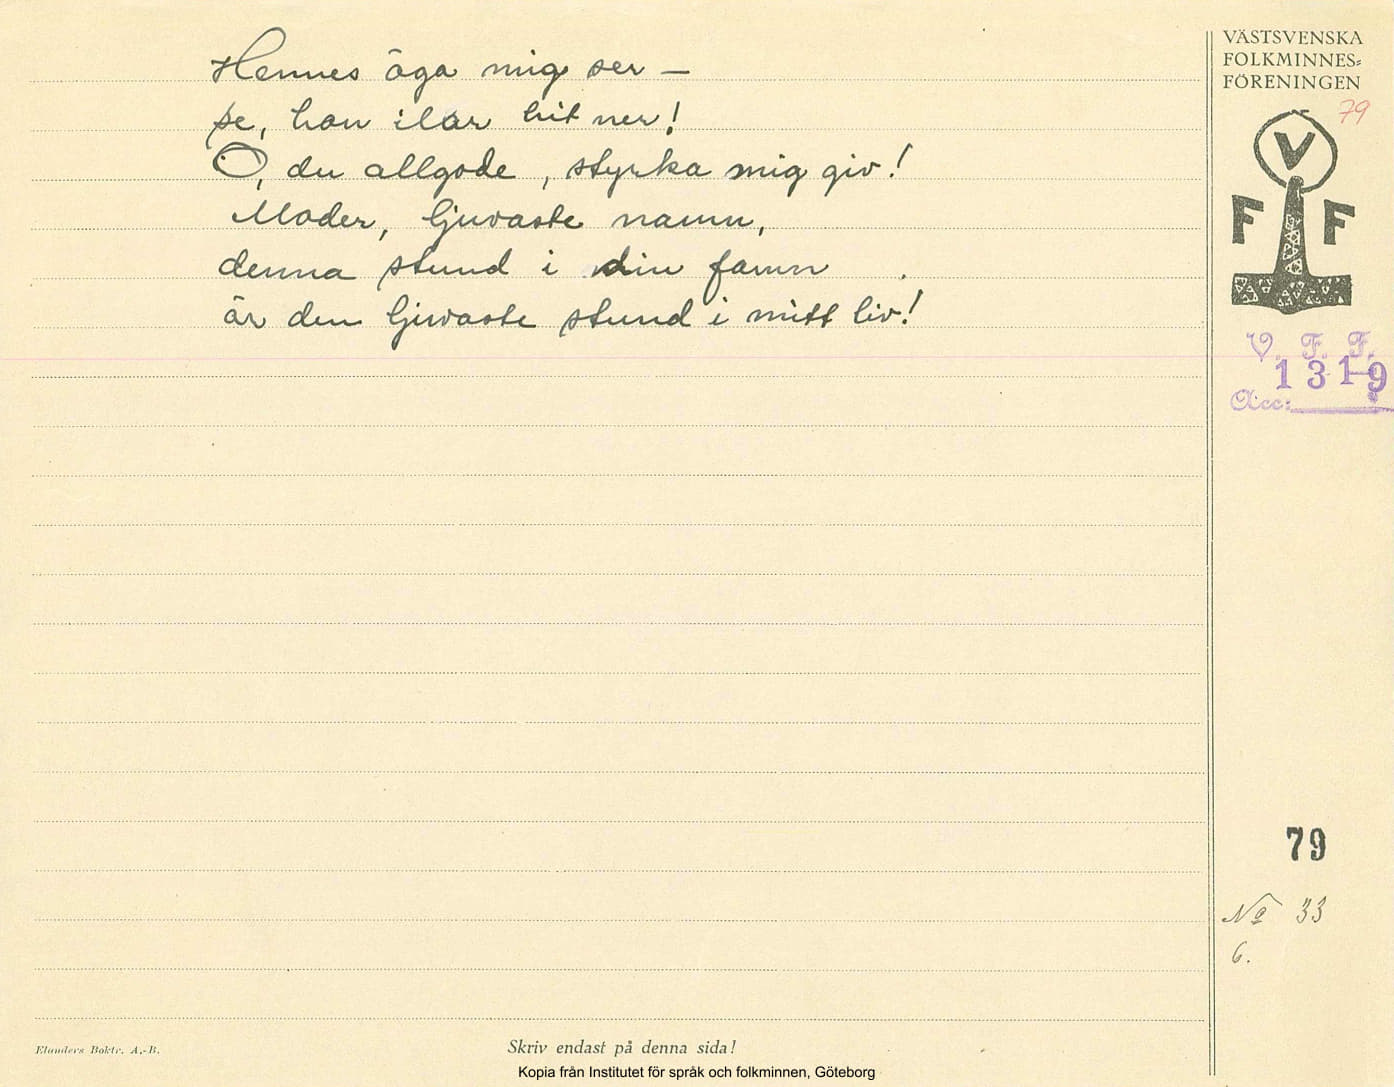 Hennes öga mig ser —
se, hon ilar hit ner!
O, du allgode, styrka mig giv!
Moder, ljuvaste namn,
denna stund i din famn
är den ljuvaste stund i mitt liv!
VÄSTSVENSKA
FOLKMINNES=
FÖRENINGEN
79
V
F F
V. F. F.
1319
Acc:
79
No 33
6.
Elanders Boktr. A.-B.
Skriv endast på denna sida!
Kopia från Institutet för språk och folkminnen, Göteborg